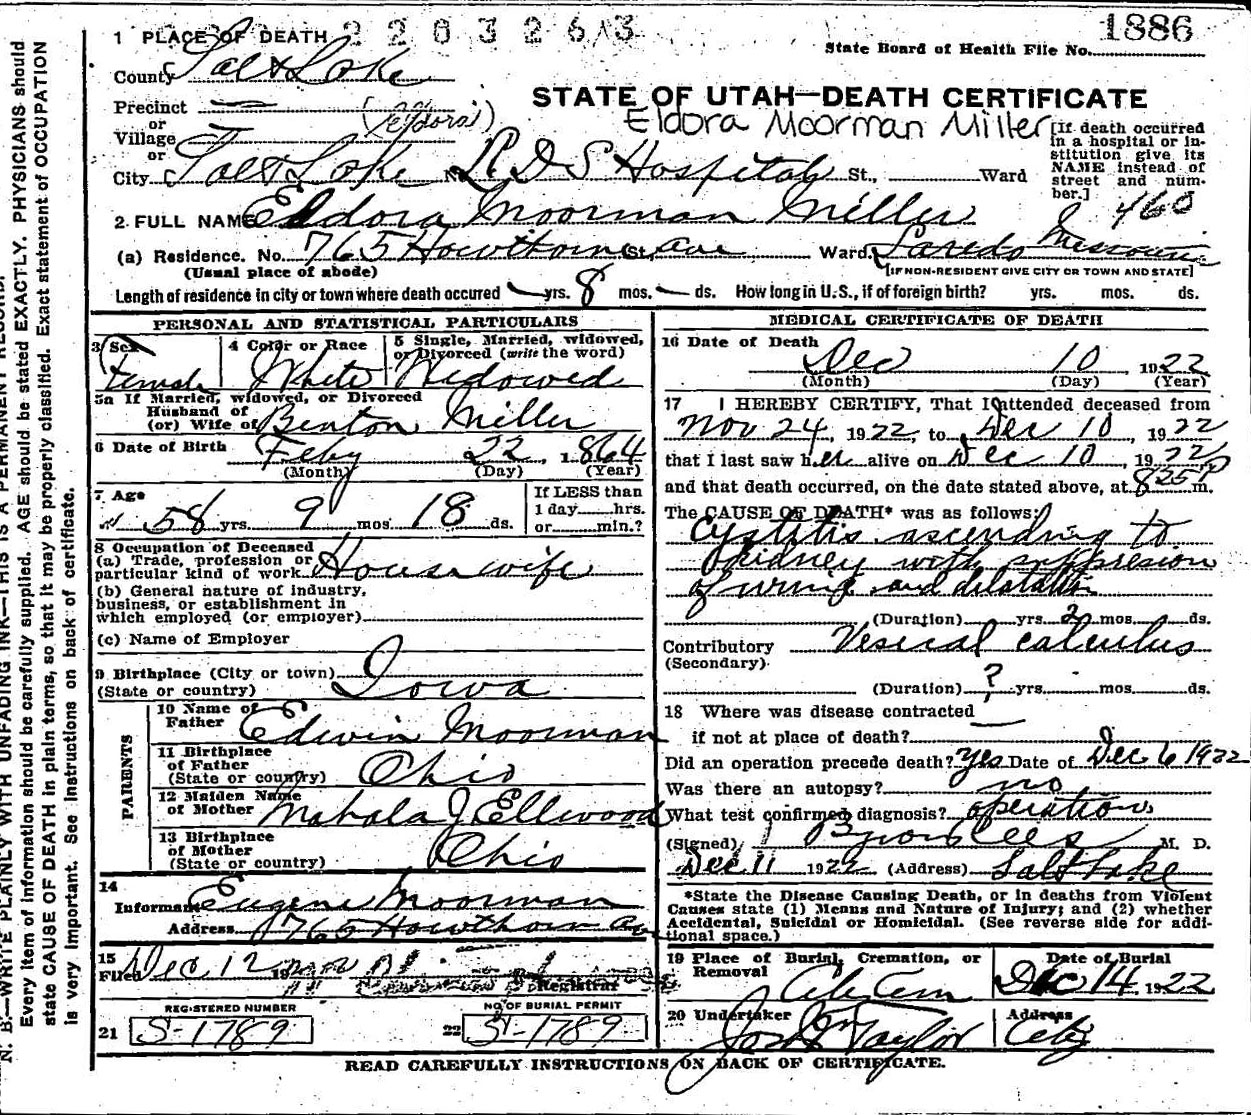 2 2 0 3 2 6 1 3
1886
1 PLACE OF DEATH
State Board of Health File No.
County Salt Lake
STATE OF UTAH—DEATH CERTIFICATE
Precinct —
or
(Eldora)
Eldora Moorman Miller
Village
or
City Salt Lake No. L.D.S Hospital St., Ward
[If death occurred
in a hospital or in-
stitution give its
NAME instead of
street and num-
ber.]
460
2. FULL NAME Eldora Moorman Miller
(a) Residence. No. 765 Hawthorne St. ave Ward. Laredo Missouri
(Usual place of abode)
[IF NON-RESIDENT GIVE CITY OR TOWN AND STATE]
Length of residence in city or town where death occured — yrs. 8 mos. — ds. How long in U.S., if of foreign birth? yrs. mos. ds.
PERSONAL AND STATISTICAL PARTICULARS
3 Sex
Female
4 Color or Race
White
5 Single, Married, widowed,
or Divorced (write the word)
Widowed
5a If Married, widowed, or Divorced
Husband of
(or) Wife of Benton Miller
6 Date of Birth Feby 22, 1864
(Month) (Day) (Year)
7 Age
58 yrs. 9 mos 18 ds.
If LESS than
1 day hrs.
or min.?
8 Occupation of Deceased
(a) Trade, profession or
particular kind of work Housewife
(b) General nature of industry,
business, or establishment in
which employed (or employer)
(c) Name of Employer
9 Birthplace (City or town)
(State or country) Iowa
PARENTS
10 Name of
Father Edwin Moorman
11 Birthplace
of Father
(State or country) Ohio
12 Maiden Name
of Mother Mahala J. Ellwood
13 Birthplace
of Mother
(State or country) Ohio
14
Informant Eugene Moorman
Address 765 Hawthorn Av
15
Filed Dec 12 19
Registrar
REGISTERED NUMBER
21 S-1789
NO. OF BURIAL PERMIT
22 S-1789
MEDICAL CERTIFICATE OF DEATH
16 Date of Death
Dec 10 1922
(Month) (Day) (Year)
17 I HEREBY CERTIFY, That I attended deceased from
Nov 24, 1922, to Dec 10, 1922
that I last saw her alive on Dec 10, 1922
and that death occurred, on the date stated above, at 825 P m.
The CAUSE OF DEATH* was as follows:
Cystitis ascending to
kidney with suppresion
of urine and dilatation
(Duration) yrs. 2 mos. ds.
Contributory Vesical calculus
(Secondary)
(Duration) ? yrs. mos. ds.
18 Where was disease contracted
if not at place of death? —
Did an operation precede death? yes Date of Dec 6 1922
Was there an autopsy? no
What test confirmed diagnosis? operation
(Signed) Byron Rees M. D.
Dec 11 1922 (Address) Salt Lake
*State the Disease Causing Death, or in deaths from Violent
Causes state (1) Means and Nature of Injury; and (2) whether
Accidental, Suicidal or Homicidal. (See reverse side for addi-
tional space.)
19 Place of Burial, Cremation, or
Removal City Cem
Date of Burial
Dec 14 1922
20 Undertaker
Jos Wm Taylor
Address
City
READ CAREFULLY INSTRUCTIONS ON BACK OF CERTIFICATE.
N. B.—WRITE PLAINLY WITH UNFADING INK—THIS IS A PERMANENT RECORD.
Every item of information should be carefully supplied. AGE should be stated EXACTLY. PHYSICIANS should
state CAUSE OF DEATH in plain terms, so that it may be properly classified. Exact statement of OCCUPATION
is very important. See instructions on back of certificate.